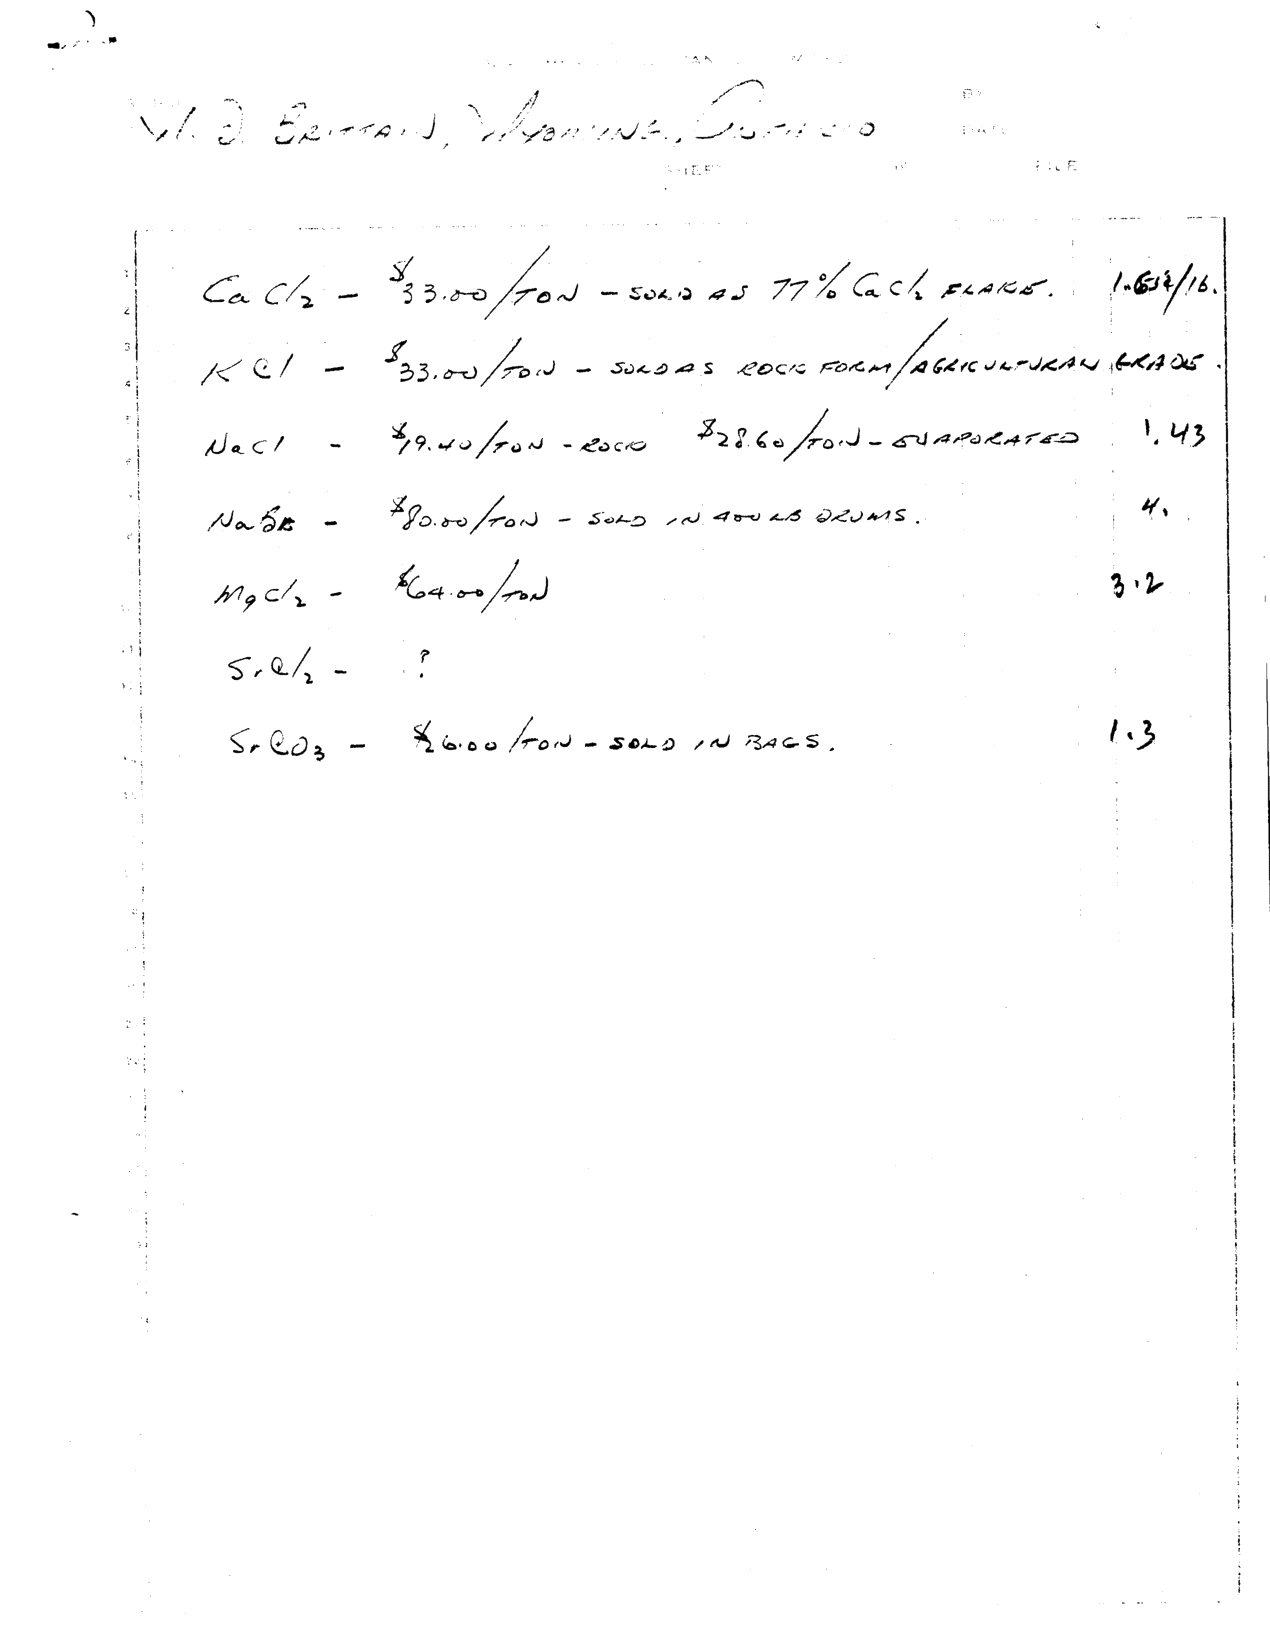 W. J. BRITTAIN, WYOMING, ONTARIO
DATE
FILE
CaCl2 - $33.00/TON - SOLD AS 77% CaCl2 FLAKE.
KCl - $33.00/TON - SOLD AS ROCK FORM/AGRICULTURAL GRADE.
NaCl - $19.40/TON - ROCK $28.60/TON - EVAPORATED 1.43
NaBr - $80.00/TON - SOLD IN 400 LB DRUMS. 4.
MgCl2 - $64.00/TON 3.2
SrCl2 - ?
SrCO3 - $26.00/TON - SOLD IN BAGS. 1.3